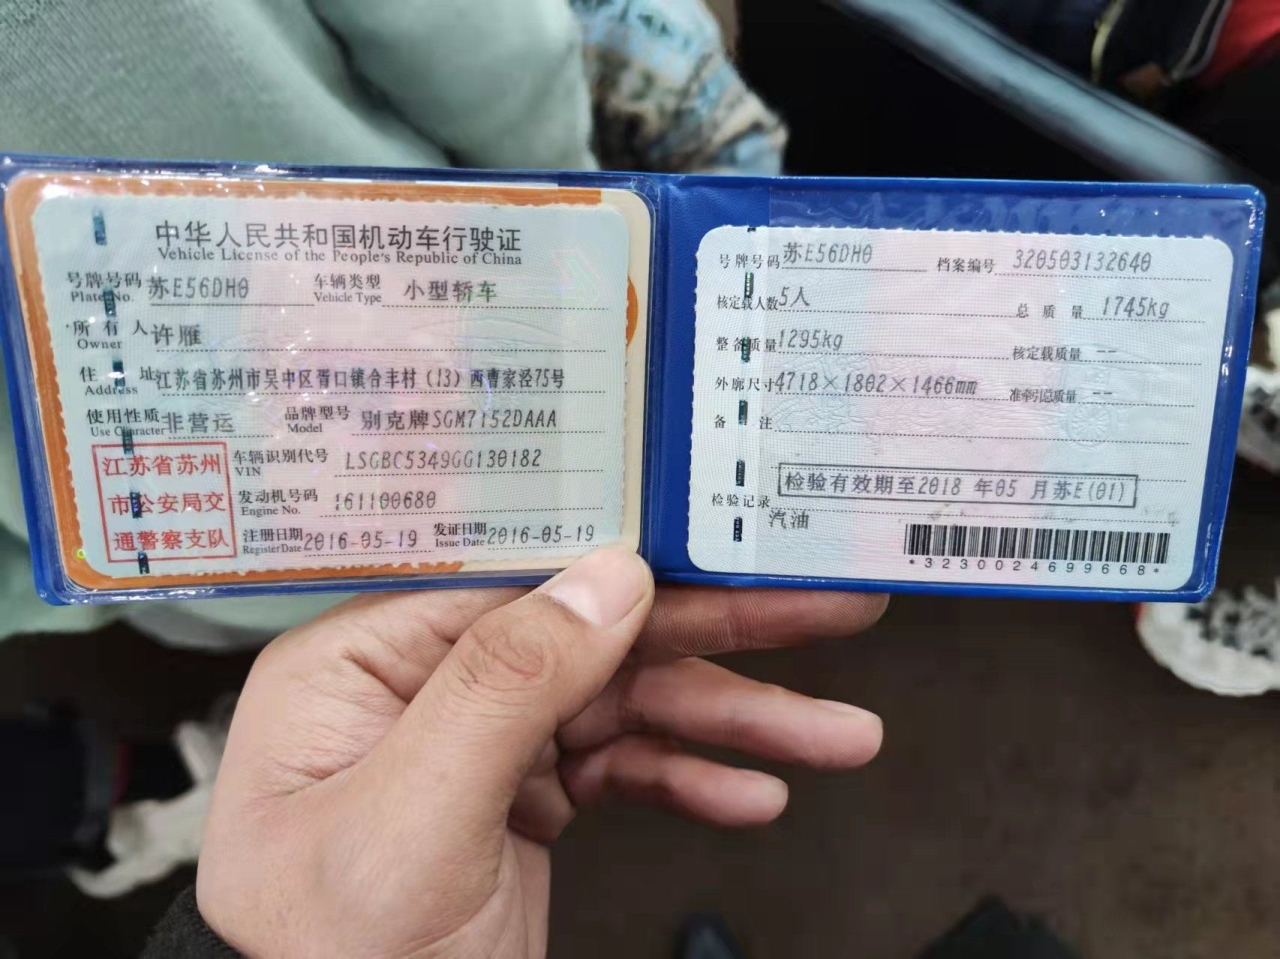 中华人民共和国机动车行驶证
Vehicle License of the People's Republic of China
号牌号码 苏E56DH0 车辆类型 小型轿车
Plate No. Vehicle Type
所有人 许雁
Owner
住址 江苏省苏州市吴中区胥口镇合丰村(13)西曹家泾75号
Address
使用性质 非营运 品牌型号 别克牌SGM7152DAAA
Use Character Model
江苏省苏州
市公安局交
通警察支队
车辆识别代号 LSGBC5349GG130182
VIN
发动机号码 161100680
Engine No.
注册日期 2016-05-19 发证日期 2016-05-19
Register Date Issue Date
号牌号码 苏E56DH0 档案编号 320503132640
核定载人数 5人 总质量 1745kg
整备质量 1295kg 核定载质量 --
外廓尺寸 4718×1802×1466mm 准牵引总质量 --
备注
检验有效期至2018 年05 月苏E(01)
检验记录
汽油
*3230024699668*